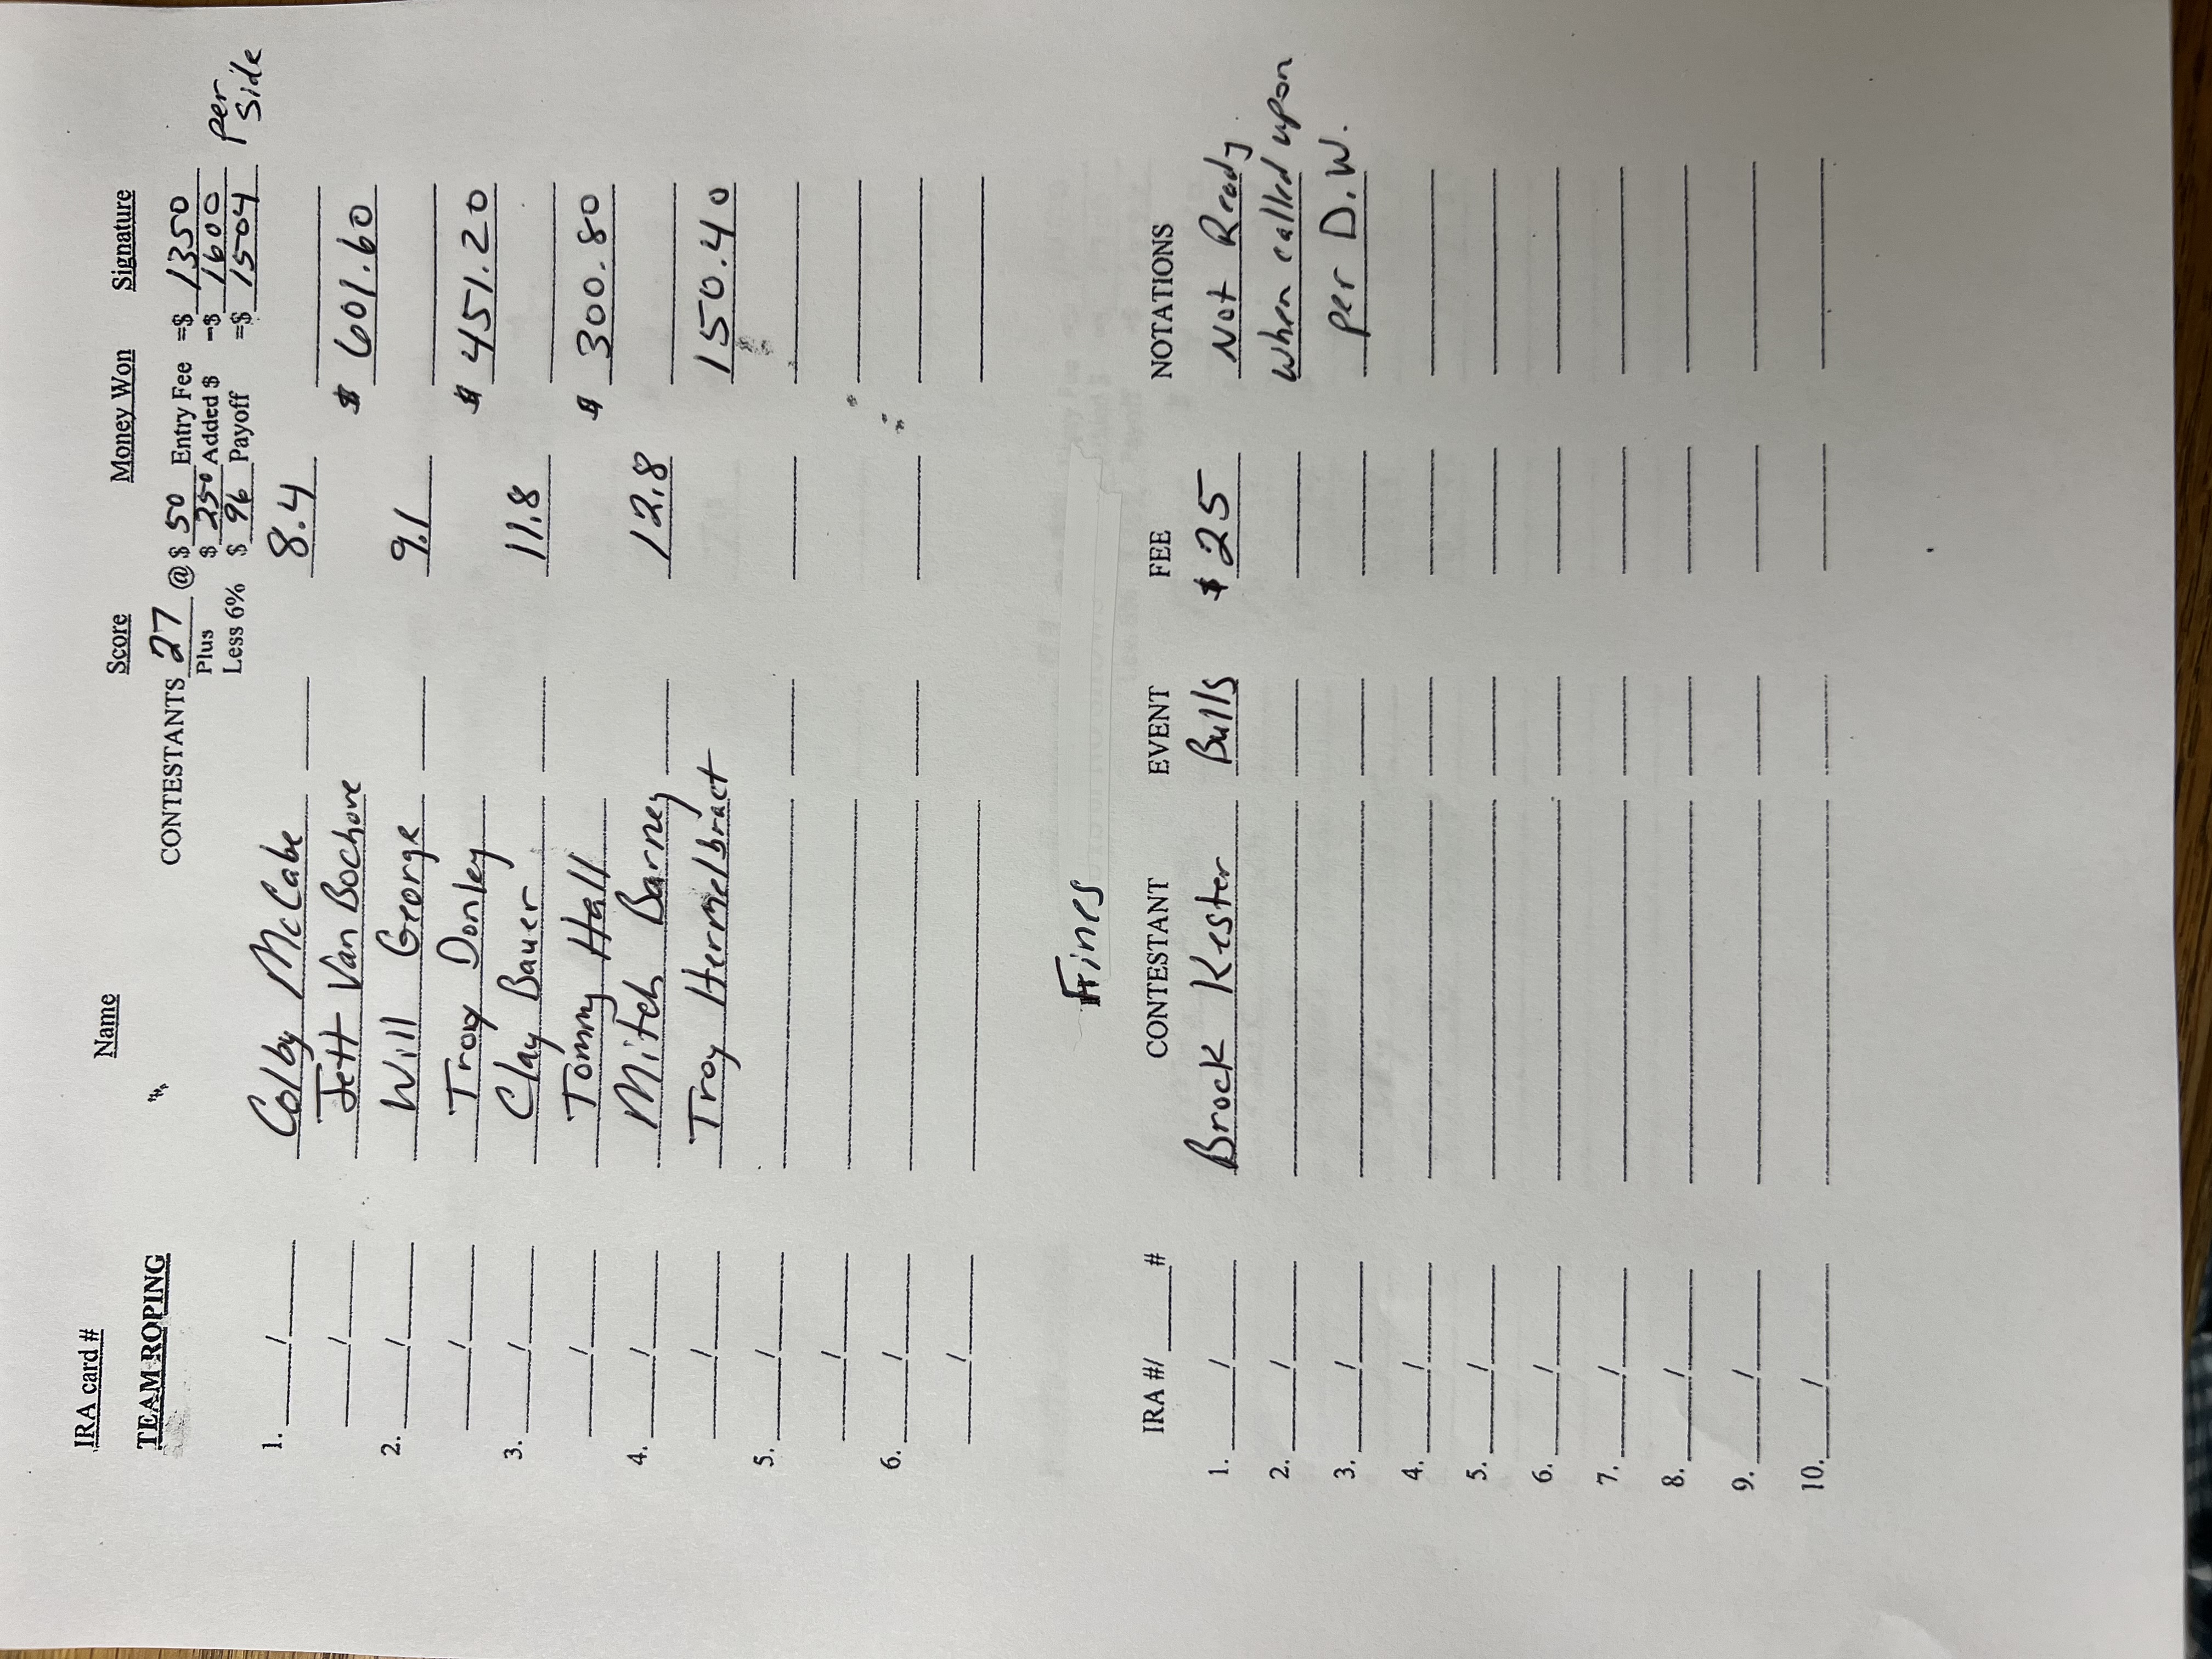 IRA card # Name Score Money Won Signature
TEAM ROPING CONTESTANTS 27 @ $ 50 Entry Fee =$ 1350
Plus $ 250 Added $ -$ 1600
Less 6% $ 96 Payoff =$ 1504 per side
1. / Colby McCabe 8.4
/ Jett Van Bochove $ 601.60
2. / Will George 9.1
/ Troy Donley $ 451.20
3. / Clay Bauer 11.8
/ Tommy Hall $ 300.80
4. / Mitch Barney 12.8
/ Troy Hermelbract 150.40
5. /
/
6. /
/
Fines
IRA #/ # CONTESTANT EVENT FEE NOTATIONS
1. / Brock Kester Bulls $ 25 Not Ready
2. / when called upon
3. / per D.W.
4. /
5. /
6. /
7. /
8. /
9. /
10. /